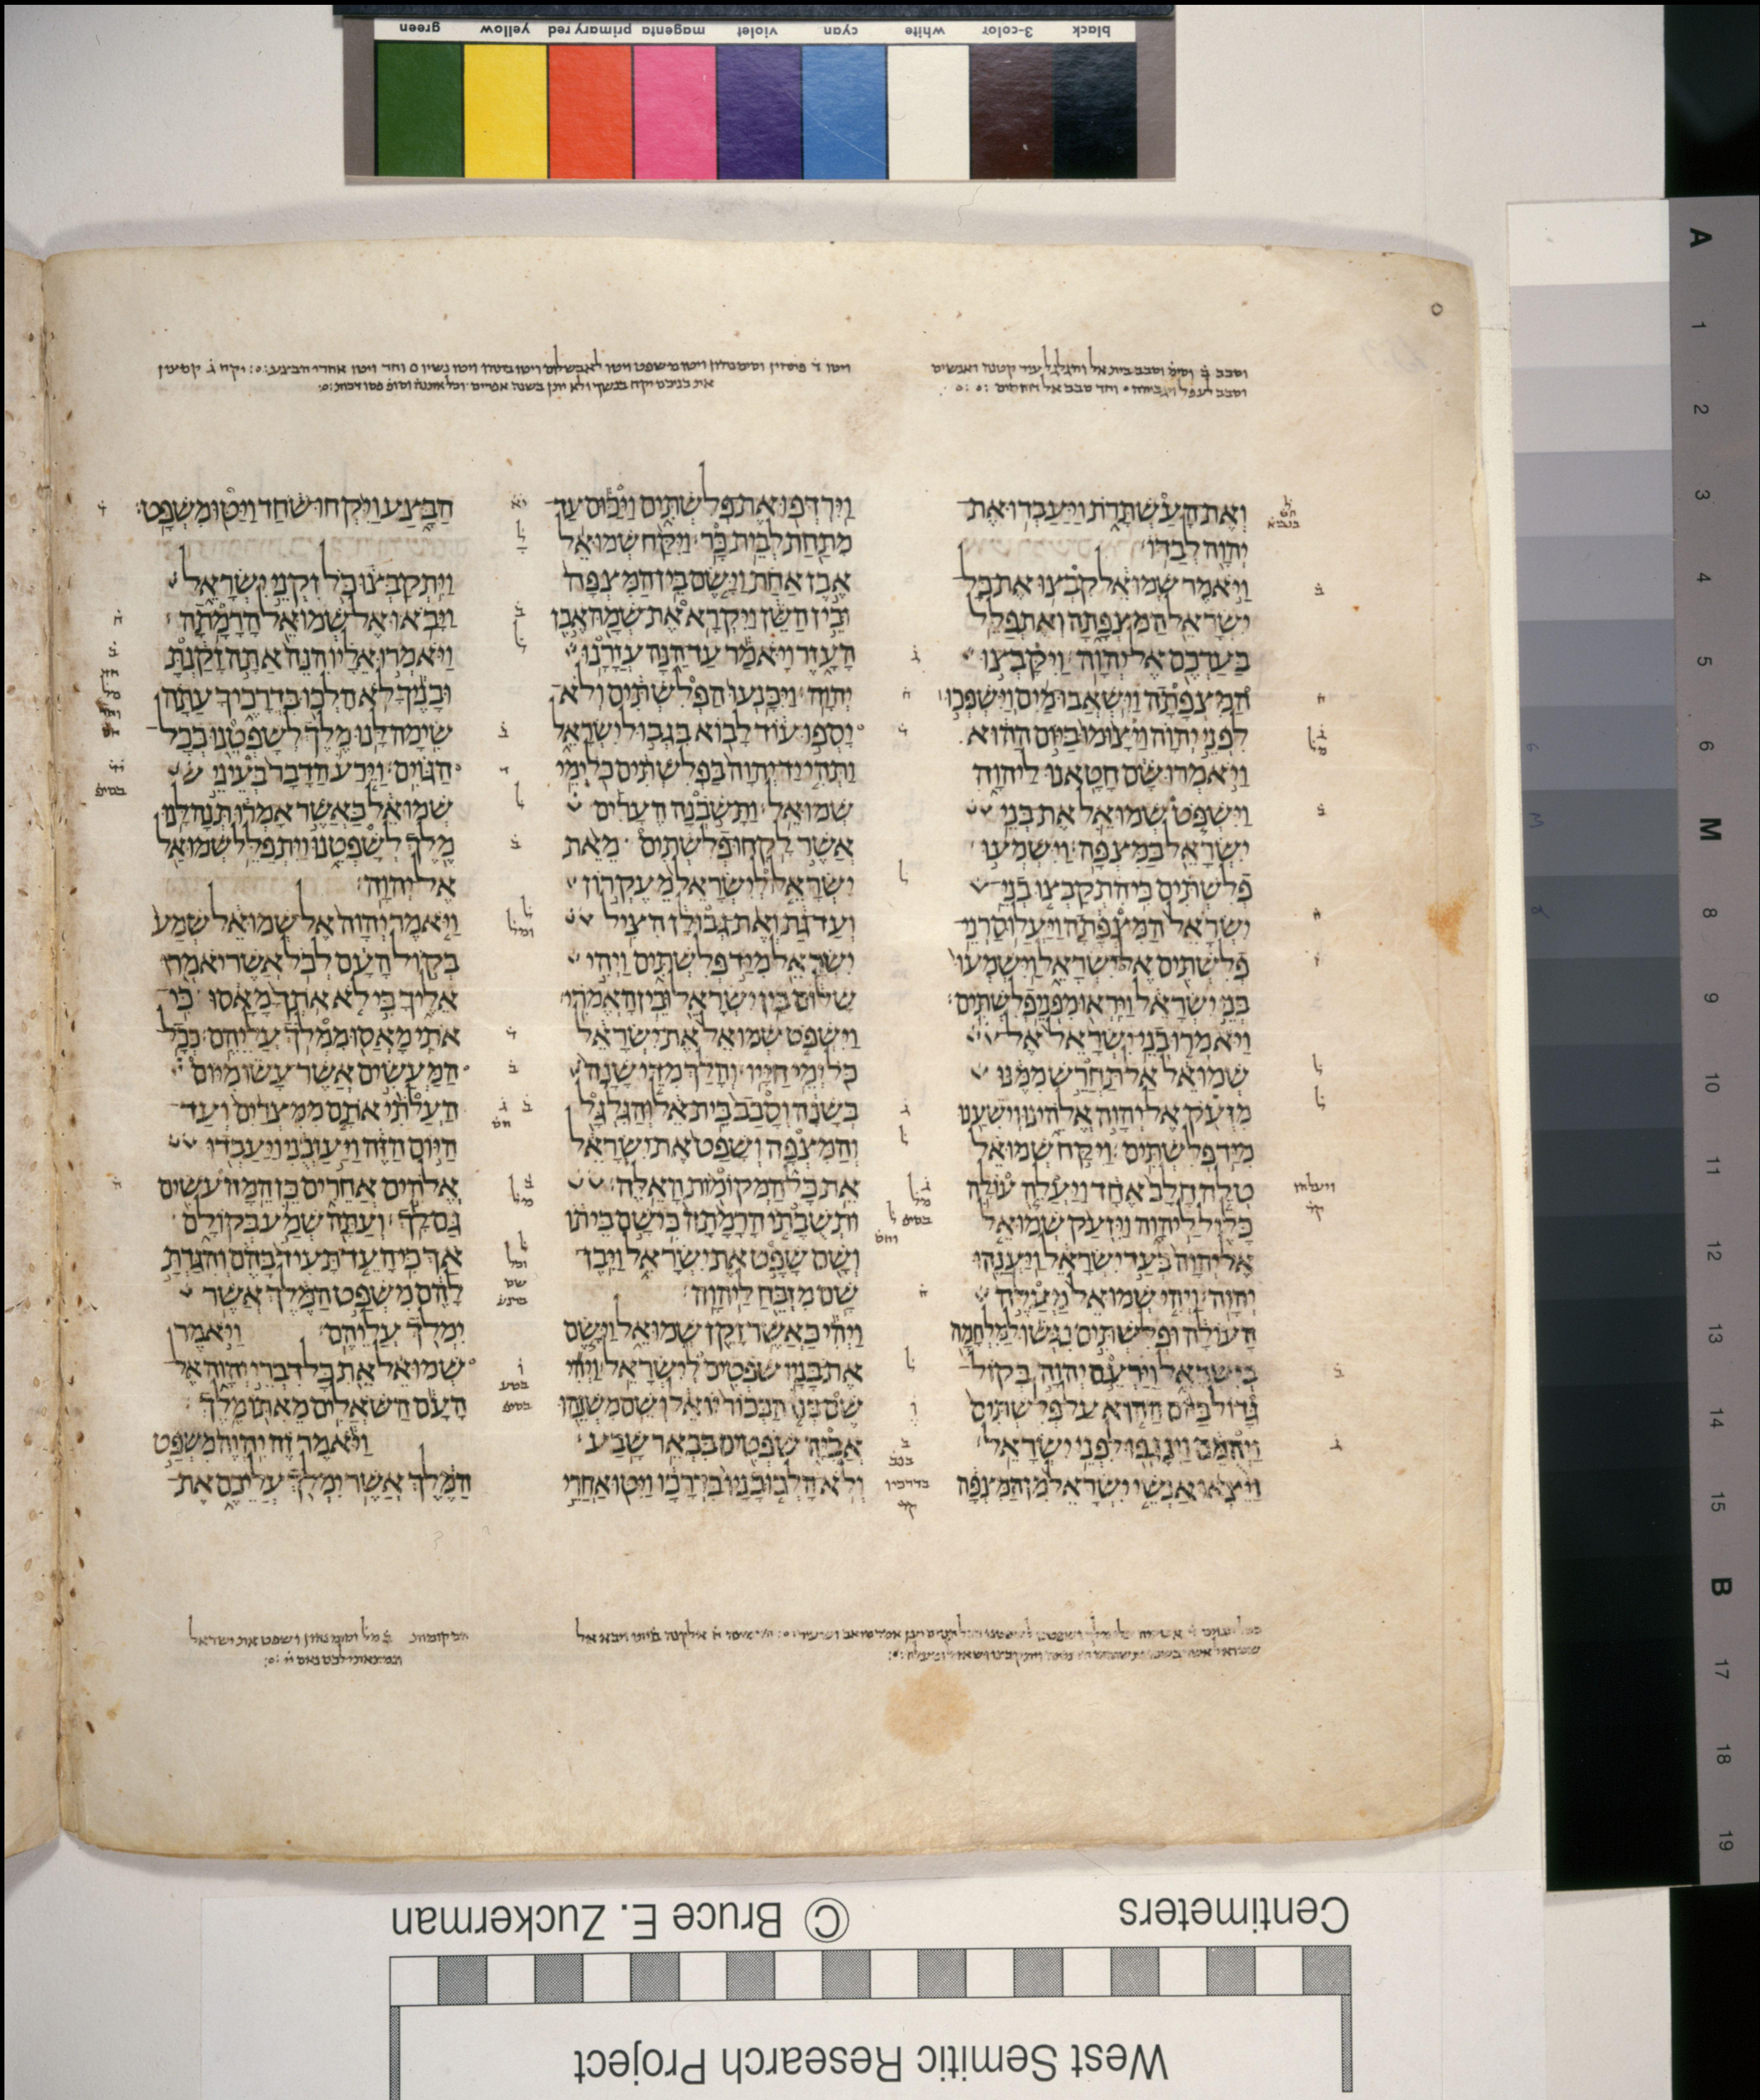 green yellow primary red magenta violet cyan white 3-color black
וְאֶת הָעַשְׁתָּרֹת וַיַּעַבְדוּ אֶת־
יְהוָה לְבַדּוֹ׃
וַיֹּאמֶר שְׁמוּאֵל קִבְצוּ אֶת כָּל־
יִשְׂרָאֵל הַמִּצְפָּתָה וְאֶתְפַּלֵּל
בַּעַדְכֶם אֶל יְהוָה׃ וַיִּקָּבְצוּ
הַמִּצְפָּתָה וַיִּשְׁאֲבוּ מַיִם וַיִּשְׁפְּכוּ׀
לִפְנֵי יְהוָה וַיָּצוּמוּ בַּיּוֹם הַהוּא
וַיֹּאמְרוּ שָׁם חָטָאנוּ לַיהוָה
וַיִּשְׁפֹּט שְׁמוּאֵל אֶת בְּנֵי
יִשְׂרָאֵל בַּמִּצְפָּה׃ וַיִּשְׁמְעוּ
פְלִשְׁתִּים כִּי הִתְקַבְּצוּ בְנֵי
יִשְׂרָאֵל הַמִּצְפָּתָה וַיַּעֲלוּ סַרְנֵי־
פְלִשְׁתִּים אֶל יִשְׂרָאֵל וַיִּשְׁמְעוּ
בְּנֵי יִשְׂרָאֵל וַיִּרְאוּ מִפְּנֵי פְלִשְׁתִּים׃
וַיֹּאמְרוּ בְנֵי יִשְׂרָאֵל אֶל
שְׁמוּאֵל אַל תַּחֲרֵשׁ מִמֶּנּוּ
מִזְּעֹק אֶל יְהוָה אֱלֹהֵינוּ וְיֹשִׁעֵנוּ
מִיַּד פְּלִשְׁתִּים׃ וַיִּקַּח שְׁמוּאֵל
טְלֵה חָלָב אֶחָד וַיַּעֲלֶה עוֹלָה
כָּלִיל לַיהוָה וַיִּזְעַק שְׁמוּאֵל
אֶל יְהוָה בְּעַד יִשְׂרָאֵל וַיַּעֲנֵהוּ
יְהוָה׃ וַיְהִי שְׁמוּאֵל מַעֲלֶה
הָעוֹלָה וּפְלִשְׁתִּים נִגְּשׁוּ לַמִּלְחָמָה
בְּיִשְׂרָאֵל וַיַּרְעֵם יְהוָה בְּקוֹל־
גָּדוֹל בַּיּוֹם הַהוּא עַל פְּלִשְׁתִּים
וַיְהֻמֵּם וַיִּנָּגְפוּ לִפְנֵי יִשְׂרָאֵל׃
וַיֵּצְאוּ אַנְשֵׁי יִשְׂרָאֵל מִן הַמִּצְפָּה
וַיִּרְדְּפוּ אֶת פְּלִשְׁתִּים וַיַּכּוּם עַד־
מִתַּחַת לְבֵית כָּר׃ וַיִּקַּח שְׁמוּאֵל
אֶבֶן אַחַת וַיָּשֶׂם בֵּין הַמִּצְפָּה
וּבֵין הַשֵּׁן וַיִּקְרָא אֶת שְׁמָהּ אֶבֶן
הָעָזֶר וַיֹּאמַר עַד הֵנָּה עֲזָרָנוּ
יְהוָה׃ וַיִּכָּנְעוּ הַפְּלִשְׁתִּים וְלֹא־
יָסְפוּ עוֹד לָבוֹא בִּגְבוּל יִשְׂרָאֵל
וַתְּהִי יַד יְהוָה בַּפְּלִשְׁתִּים כֹּל יְמֵי
שְׁמוּאֵל׃ וַתָּשֹׁבְנָה הֶעָרִים
אֲשֶׁר לָקְחוּ פְלִשְׁתִּים מֵאֵת
יִשְׂרָאֵל׀ לְיִשְׂרָאֵל מֵעֶקְרוֹן
וְעַד גַּת וְאֶת גְּבוּלָן הִצִּיל
יִשְׂרָאֵל מִיַּד פְּלִשְׁתִּים וַיְהִי
שָׁלוֹם בֵּין יִשְׂרָאֵל וּבֵין הָאֱמֹרִי׃
וַיִּשְׁפֹּט שְׁמוּאֵל אֶת יִשְׂרָאֵל
כֹּל יְמֵי חַיָּיו׃ וְהָלַךְ מִדֵּי שָׁנָה
בְּשָׁנָה וְסָבַב בֵּית אֵל וְהַגִּלְגָּל
וְהַמִּצְפָּה וְשָׁפַט אֶת יִשְׂרָאֵל
אֵת כָּל הַמְּקוֹמוֹת הָאֵלֶּה׃
וּתְשֻׁבָתוֹ הָרָמָתָה כִּי שָׁם בֵּיתוֹ
וְשָׁם שָׁפָט אֶת יִשְׂרָאֵל וַיִּבֶן
שָׁם מִזְבֵּחַ לַיהוָה׃
וַיְהִי כַּאֲשֶׁר זָקֵן שְׁמוּאֵל וַיָּשֶׂם
אֶת בָּנָיו שֹׁפְטִים לְיִשְׂרָאֵל׃ וַיְהִי
שֶׁם בְּנוֹ הַבְּכוֹר יוֹאֵל וְשֵׁם מִשְׁנֵהוּ
אֲבִיָּה שֹׁפְטִים בִּבְאֵר שָׁבַע׃
וְלֹא הָלְכוּ בָנָיו בִּדְרָכָו וַיִּטּוּ אַחֲרֵי
הַבָּצַע וַיִּקְחוּ שֹׁחַד וַיַּטּוּ מִשְׁפָּט׃
וַיִּתְקַבְּצוּ כֹּל זִקְנֵי יִשְׂרָאֵל
וַיָּבֹאוּ אֶל שְׁמוּאֵל הָרָמָתָה׃
וַיֹּאמְרוּ אֵלָיו הִנֵּה אַתָּה זָקַנְתָּ
וּבָנֶיךָ לֹא הָלְכוּ בִּדְרָכֶיךָ עַתָּה
שִׂימָה לָּנוּ מֶלֶךְ לְשָׁפְטֵנוּ כְּכָל־
הַגּוֹיִם׃ וַיֵּרַע הַדָּבָר בְּעֵינֵי
שְׁמוּאֵל כַּאֲשֶׁר אָמְרוּ תְּנָה לָּנוּ
מֶלֶךְ לְשָׁפְטֵנוּ וַיִּתְפַּלֵּל שְׁמוּאֵל
אֶל יְהוָה׃
וַיֹּאמֶר יְהוָה אֶל שְׁמוּאֵל שְׁמַע
בְּקוֹל הָעָם לְכֹל אֲשֶׁר יֹאמְרוּ
אֵלֶיךָ כִּי לֹא אֹתְךָ מָאָסוּ כִּי־
אֹתִי מָאֲסוּ מִמְּלֹךְ עֲלֵיהֶם׃ כְּכָל־
הַמַּעֲשִׂים אֲשֶׁר עָשׂוּ מִיּוֹם
הַעֲלֹתִי אֹתָם מִמִּצְרַיִם וְעַד־
הַיּוֹם הַזֶּה וַיַּעַזְבֻנִי וַיַּעַבְדוּ
אֱלֹהִים אֲחֵרִים כֵּן הֵמָּה עֹשִׂים
גַּם לָךְ׃ וְעַתָּה שְׁמַע בְּקוֹלָם
אַךְ כִּי הָעֵד תָּעִיד בָּהֶם וְהִגַּדְתָּ
לָהֶם מִשְׁפַּט הַמֶּלֶךְ אֲשֶׁר
יִמְלֹךְ עֲלֵיהֶם׃ וַיֹּאמֶר
שְׁמוּאֵל אֵת כָּל דִּבְרֵי יְהוָה אֶל
הָעָם הַשֹּׁאֲלִים מֵאִתּוֹ מֶלֶךְ׃
וַיֹּאמֶר זֶה יִהְיֶה מִשְׁפַּט
הַמֶּלֶךְ אֲשֶׁר יִמְלֹךְ עֲלֵיכֶם אֶת־
A 1 2 3 4 5 6 M 8 9 10 11 12 13 14 15 B 17 18 19
Centimeters
© Bruce E. Zuckerman
West Semitic Research Project